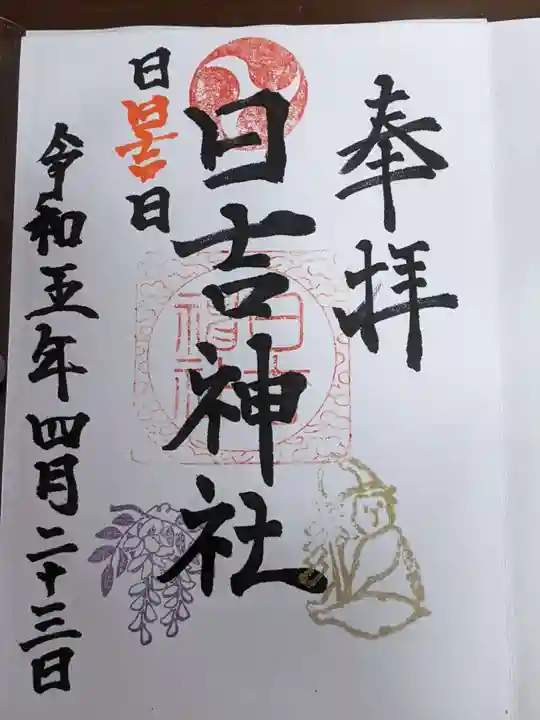 奉拝
日吉神社
日日吉日
令和五年四月二十三日